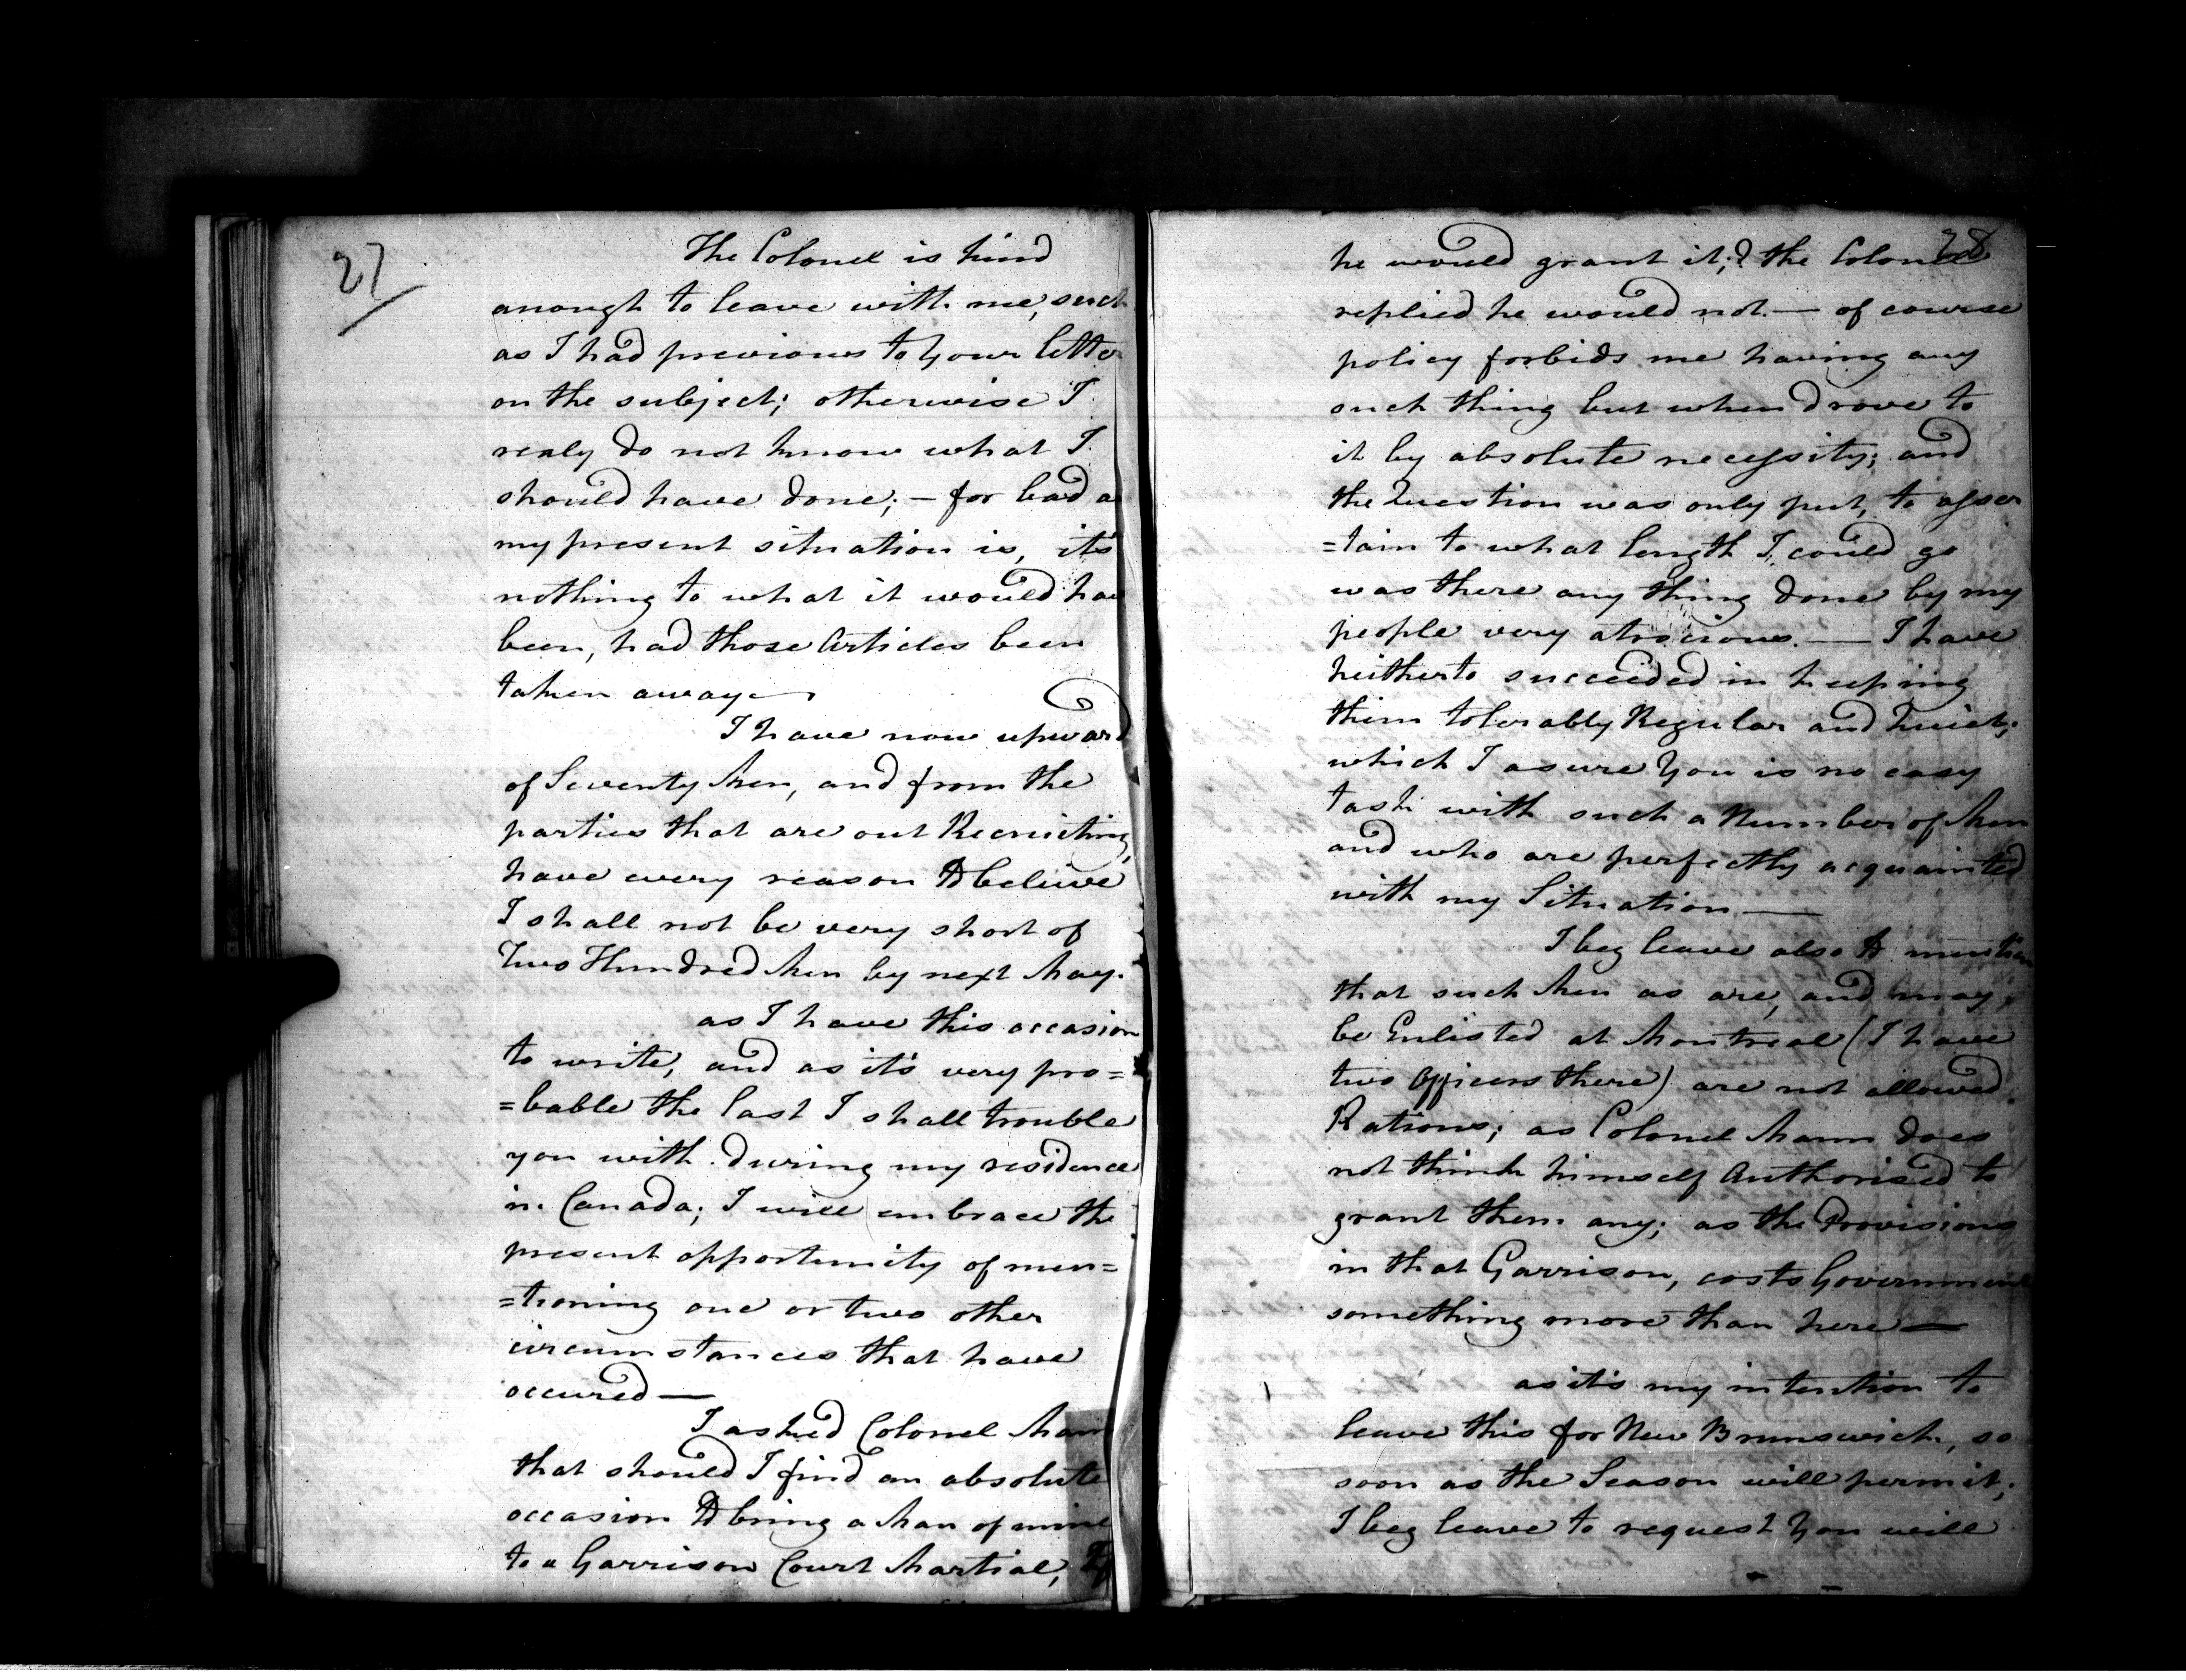 27
The Colonel is kind
anough to leave with me, such
as I had previous to Your letter
on the subject; otherwise I
realy do not know what I
should have done; — for bad as
my present situation is, it's
nothing to what it would have
been, had those Articles been
taken away —
I have now upward
of Seventy Men, and from the
parties that are out Recruiting,
have every reason to beleive
I shall not be very short of
Two Hundred Men by next May.
as I have this occasion
to write, and as it's very pro=
=bable the last I shall trouble
you with during my residence
in Canada; I will embrace the
present opportunity of men=
=tioning one or two other
circumstances that have
occured —
I asked Colonel Mann
that should I find an absolute
occasion to bring a Man of mine
to a Garrison Court Martial, If
28
he would grant it;? the Colonel
replied he would not — of course
policy forbids me having any
such thing but when drove to
it by absolute necessity; and
the Question was only put, to asser
=tain to what length I could go
was there any thing done by my
people very atrocious. — I have
heitherto succeeded in keeping
them tolerably Regular and Quiet;
which I asure You is no easy
task with such a Number of Men
and who are perfectly acquainted
with my Situation —
I beg leave also to mention
that such Men as are, and may,
be Enlisted at Montreal (I have
two Officers there) are not allowed
Rations; as Colonel Mann does
not think himself Authorised to
grant them any; as the Provisions
in that Garrison, costs Government
something more than here —
as it's my intention to
leave this for New Brunswick, so
soon as the Season will permit;
I beg leave to request You will